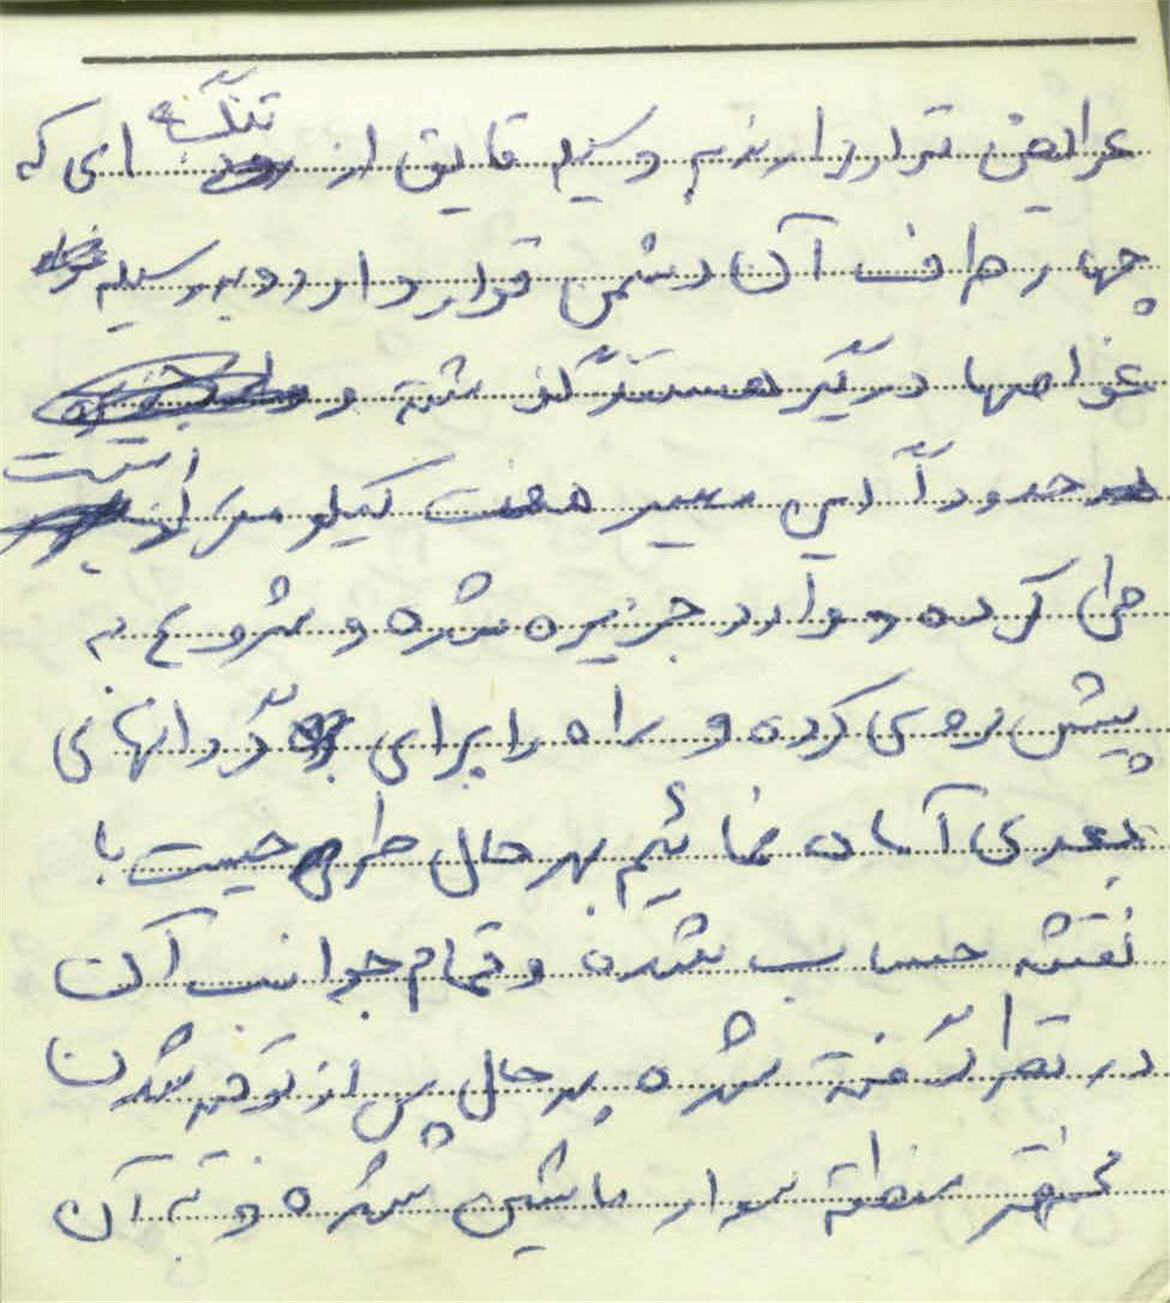 عرایض قرار دارند به وسیله قایق از تنگه ای که
چهار طرف آن دشمن قرار دارد و به وسیله
غواصها درگیر هستند گذشته و
حدوداً این مسیر هفت کیلومتر است
طی کرده و وارد جزیره شده و شروع به
پیش روی کرده و راه را برای گردانهای
بعدی آسان نمائیم بهر حال طرحیست با
نقشه حساب شده و تمام جوانب آن
در نظر گرفته شده بهر حال پس از توجیه شدن
مختصر منطقه سوار ماشین شده و به آن